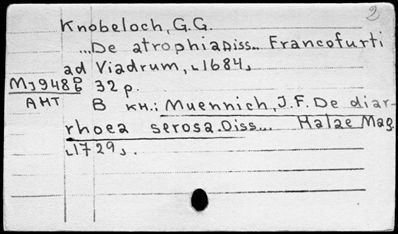 2
Knobeloch, G.G.
...De atrophia Diss... Francofurti
ad Viadrum, [1684]
MJ948 32 p.
АНТ В кн.: Muennich, J.F. De diar-
rhoea serosa. Diss... Halae Mag.
[1729].